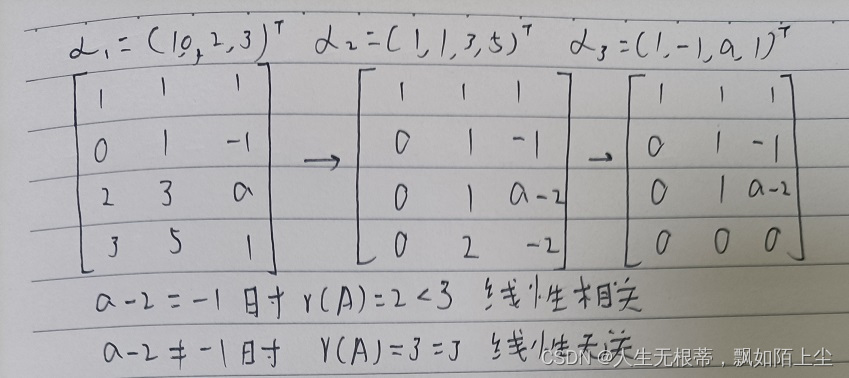 α₁=(1,0,2,3)ᵀ α₂=(1,1,3,5)ᵀ α₃=(1,-1,a,1)ᵀ
1 1 1 1 1 1 1 1 1
0 1 -1 → 0 1 -1 → 0 1 -1
2 3 a 0 1 a-2 0 1 a-2
3 5 1 0 2 -2 0 0 0
a-2=-1时 r(A)=2<3 线性相关
a-2≠-1时 r(A)=3=3 线性无关
CSDN @人生无根蒂，飘如陌上尘